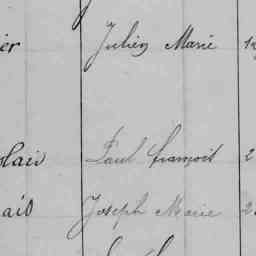 ier Julien Marie
lais Paul françois 2
ais Joseph Marie 2